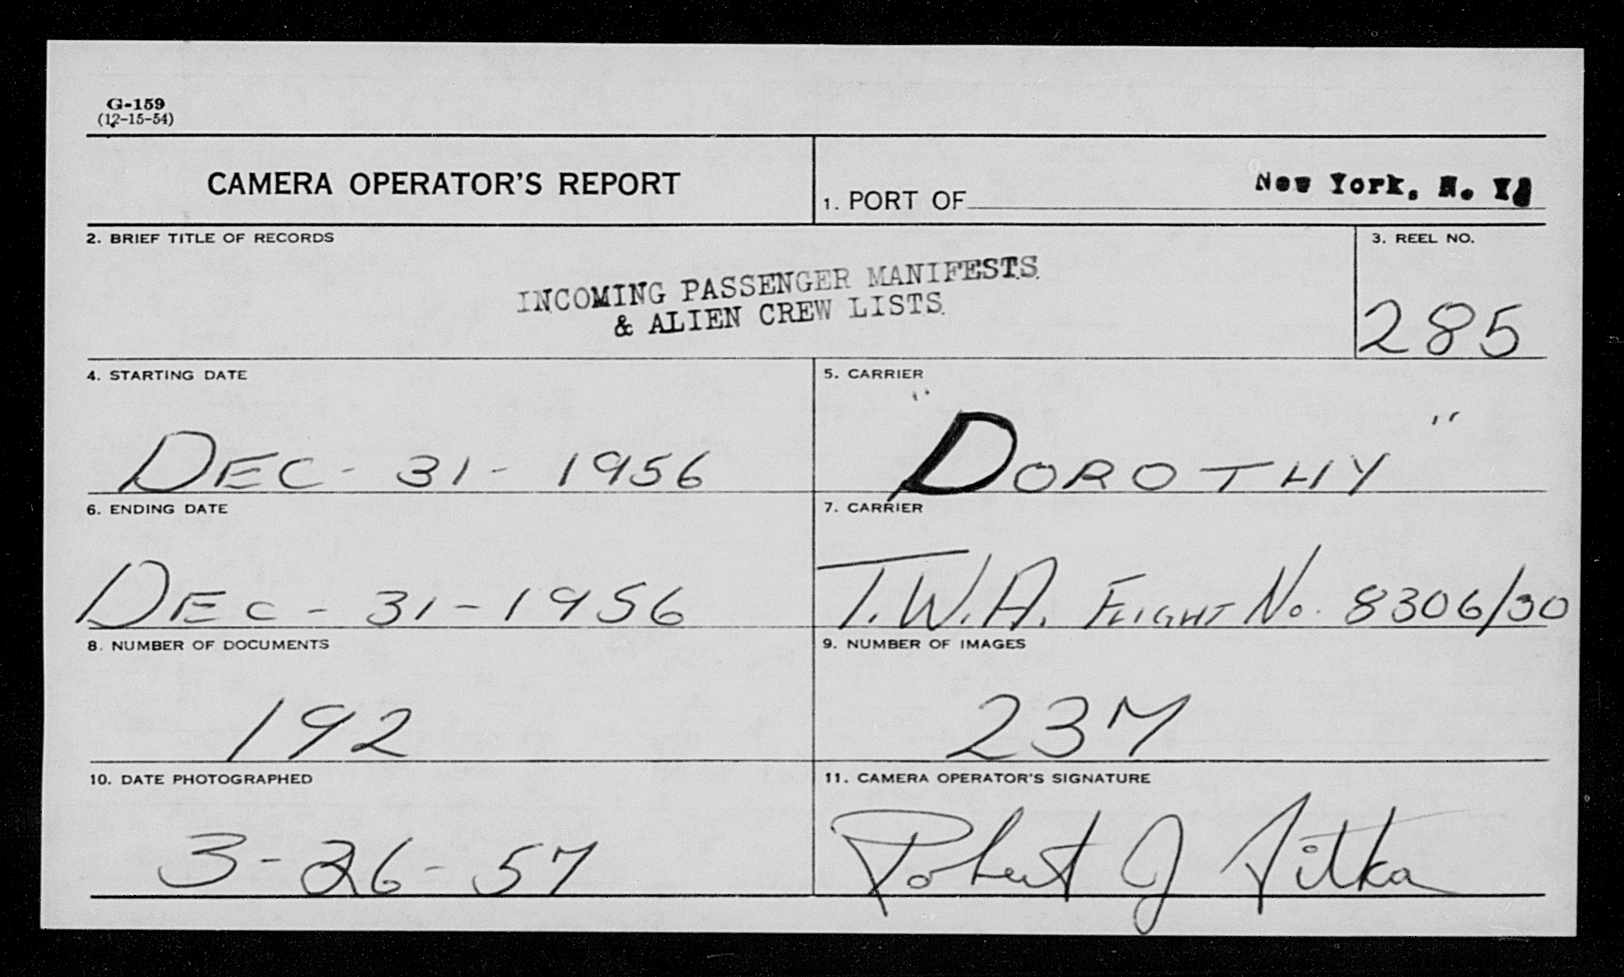 G-159
(12-15-54)
CAMERA OPERATOR'S REPORT
1. PORT OF New York, N. Y.
2. BRIEF TITLE OF RECORDS
INCOMING PASSENGER MANIFESTS
& ALIEN CREW LISTS.
3. REEL NO.
285
4. STARTING DATE
DEC - 31 - 1956
5. CARRIER
"DOROTHY"
6. ENDING DATE
DEC - 31 - 1956
7. CARRIER
T.W.A. FLIGHT No. 8306/30
8. NUMBER OF DOCUMENTS
192
9. NUMBER OF IMAGES
237
10. DATE PHOTOGRAPHED
3-26-57
11. CAMERA OPERATOR'S SIGNATURE
Robert J